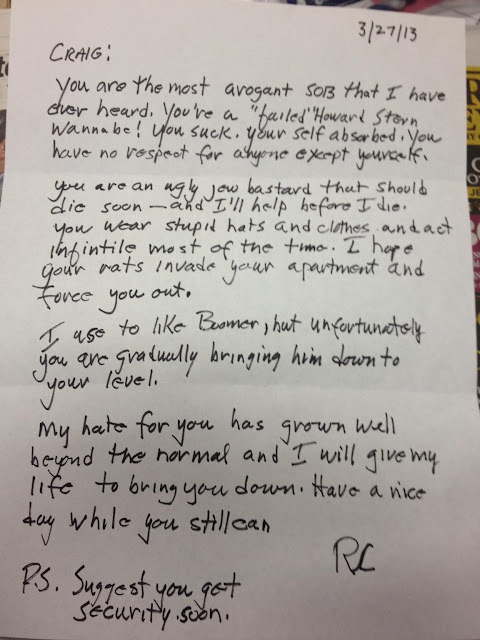 3/27/13
CRAIG:
You are the most arogant SOB that I have
ever heard. You're a "failed" Howard Stern
Wannabe! You suck. your self absorbed. You
have no respect for anyone except yourself.
you are an ugly jew bastard that should
die soon — and I'll help before I die.
you wear stupid hats and clothes and act
infintile most of the time. I hope
your rats invade your apartment and
force you out.
I use to like Boomer, but unfortunately
you are gradually bringing him down to
your level.
My hate for you has grown well
beyond the normal and I will give my
life to bring you down. Have a nice
day while you still can
RC
P.S. Suggest you get
security soon.